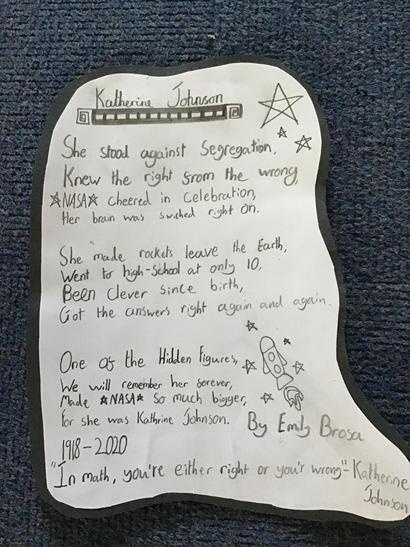 Katherine Johnson
She stood against Segregation,
Knew the right from the wrong,
☆NASA☆ cheered in celebration,
Her brain was swiched right on.
She made rockets leave the Earth,
Went to high-school at only 10,
Been clever since birth,
Got the answers right again and again.
One of the Hidden Figures,
We will remember her forever,
Made ☆NASA☆ so much bigger,
for she was Kathrine Johnson.
By Emily Brosa
1918-2020
"In math, you're either right or you'r wrong"- Katherine
Johnson